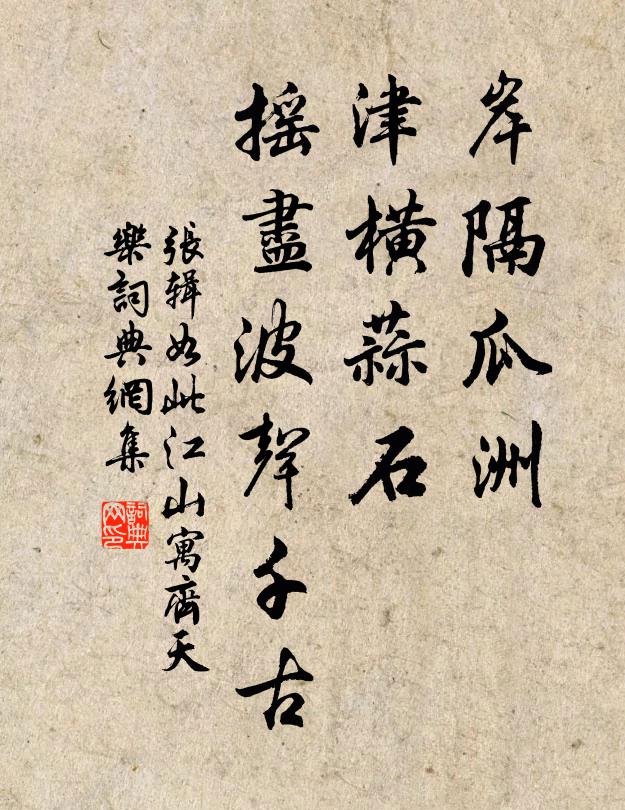 岸隔瓜洲
津橫蒜石
摇盡波聲千古
張辑如此江山寓齊天
樂詞典網集
詞典
网印